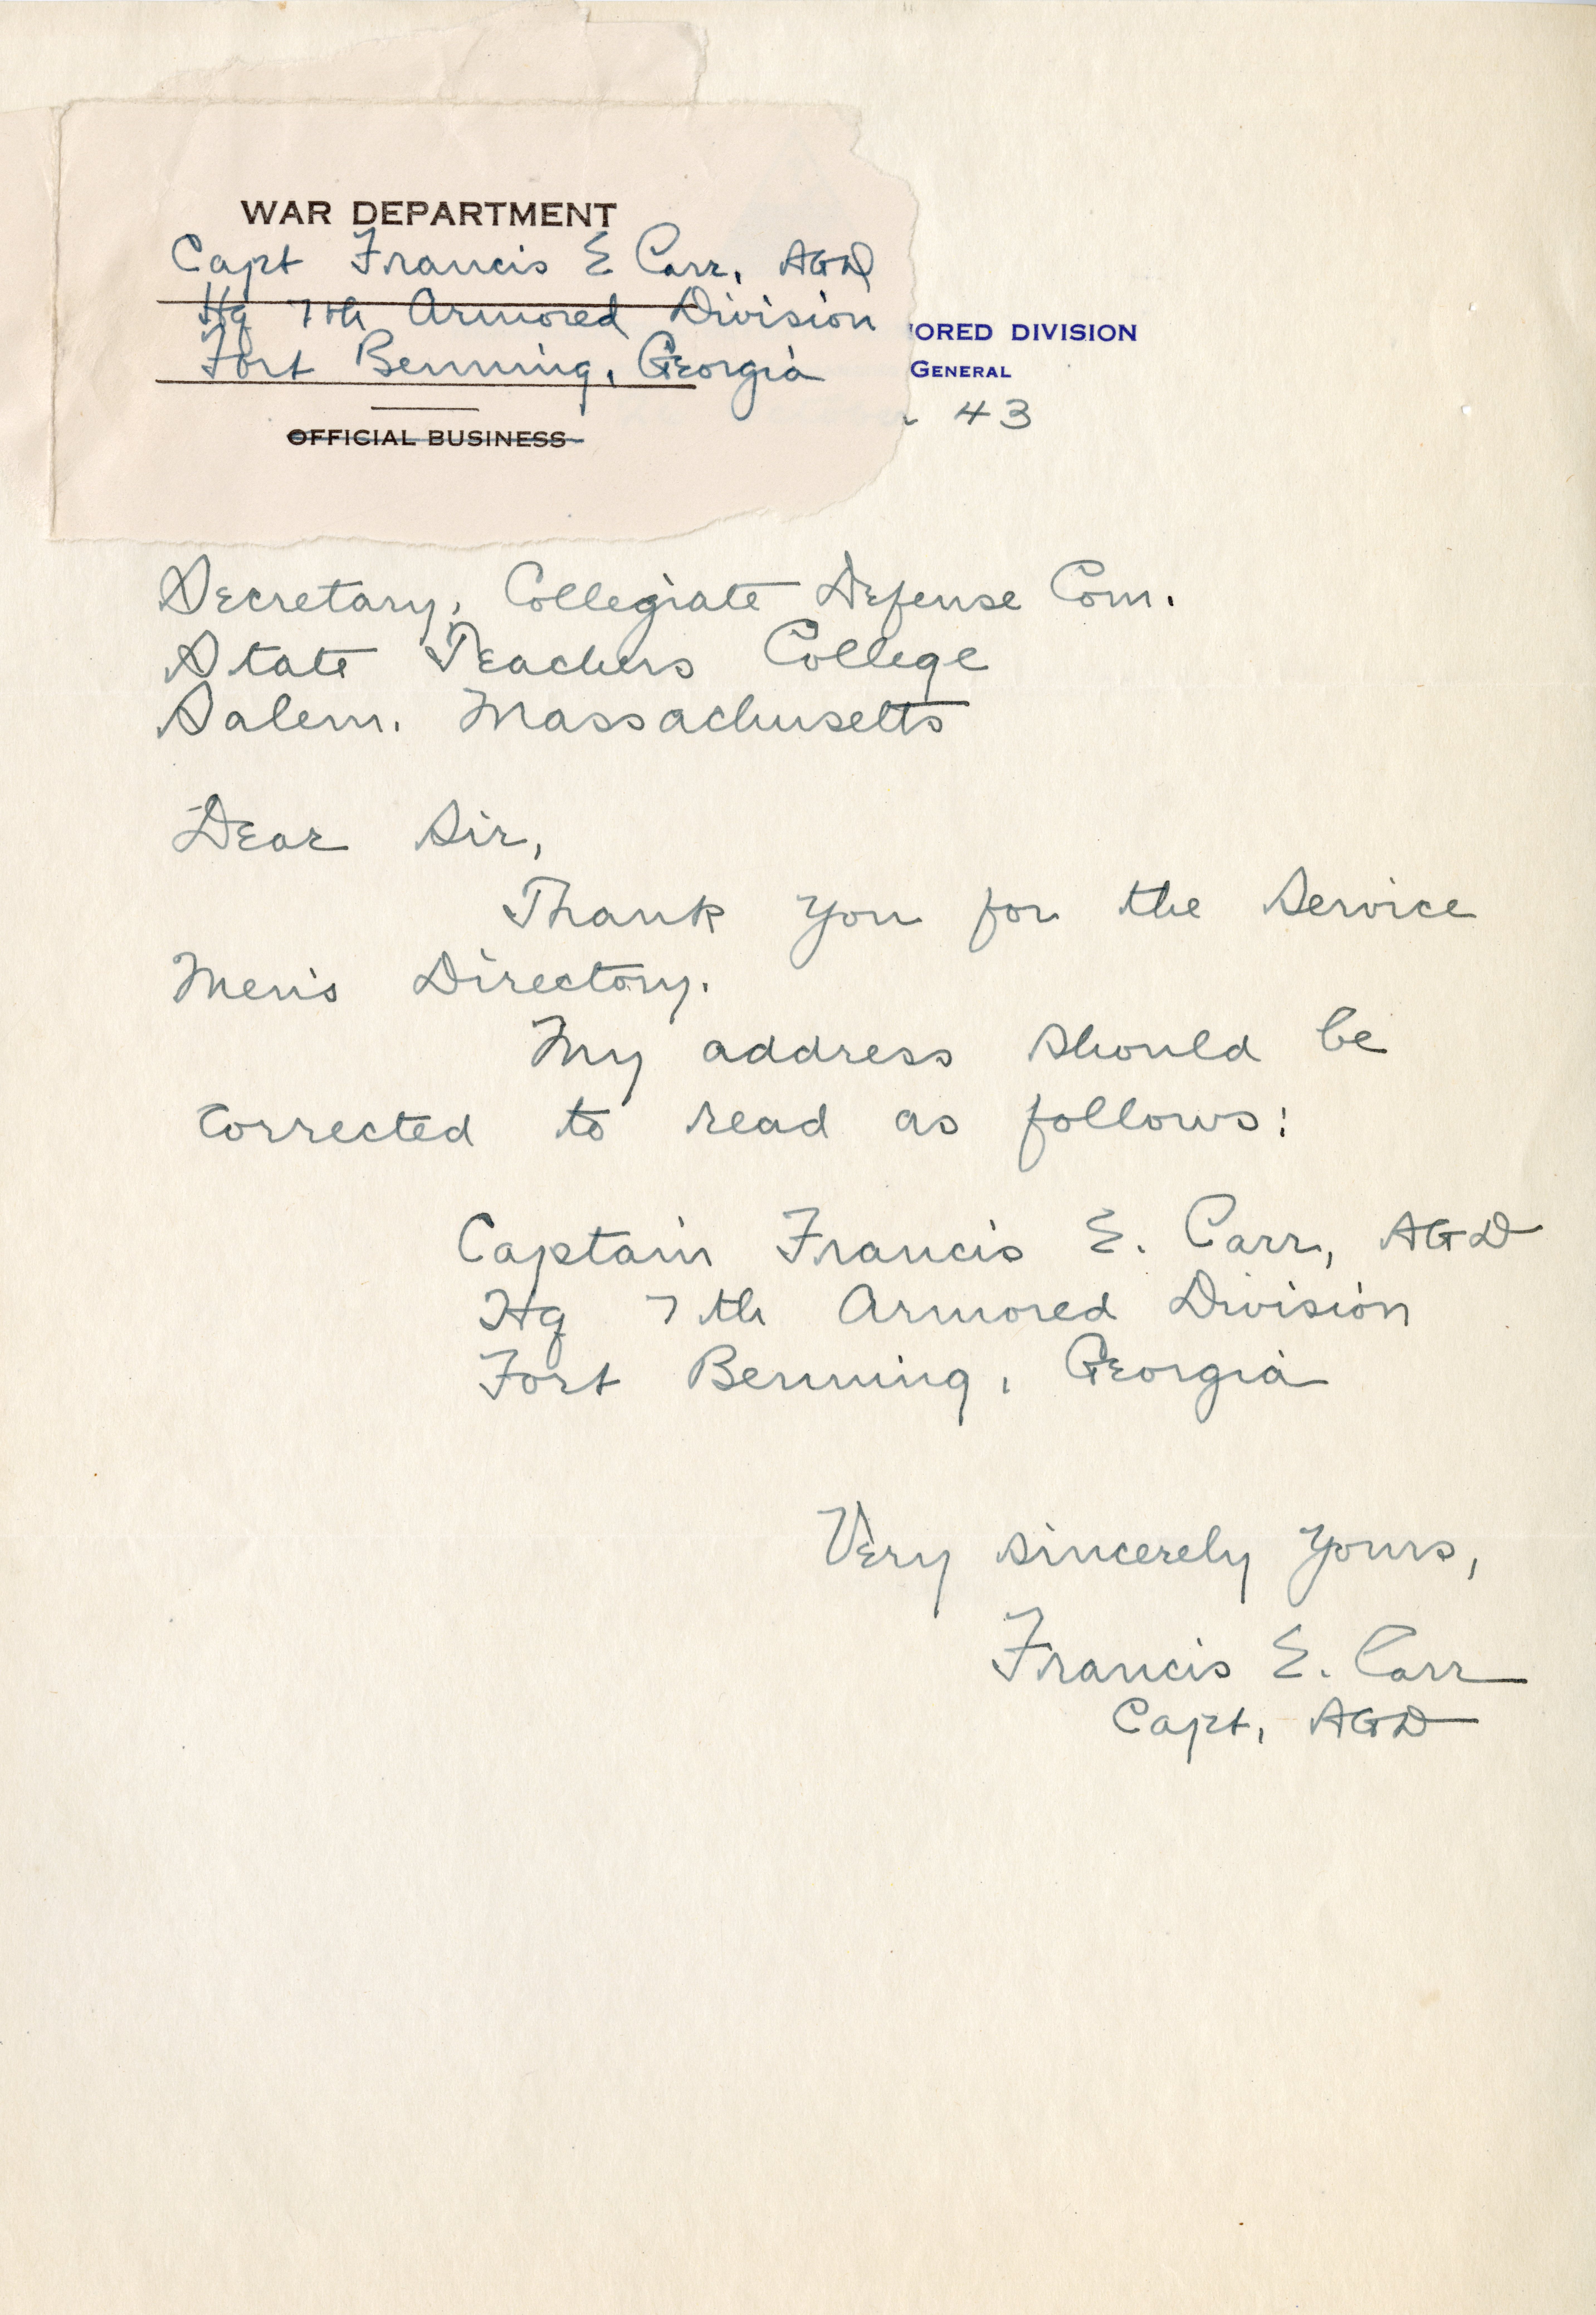 WAR DEPARTMENT
Capt Francis E Carr, AGD
Hq 7th Armored Division
Fort Benning, Georgia
OFFICIAL BUSINESS
ORED DIVISION
GENERAL
43
Secretary, Collegiate Defense Com.
State Teachers College
Salem, Massachusetts
Dear Sir,
Thank you for the Service
Men's Directory.
My address should be
corrected to read as follows:
Captain Francis E. Carr, AGD
Hq 7th Armored Division
Fort Benning, Georgia
Very sincerely yours,
Francis E. Carr
Capt, AGD